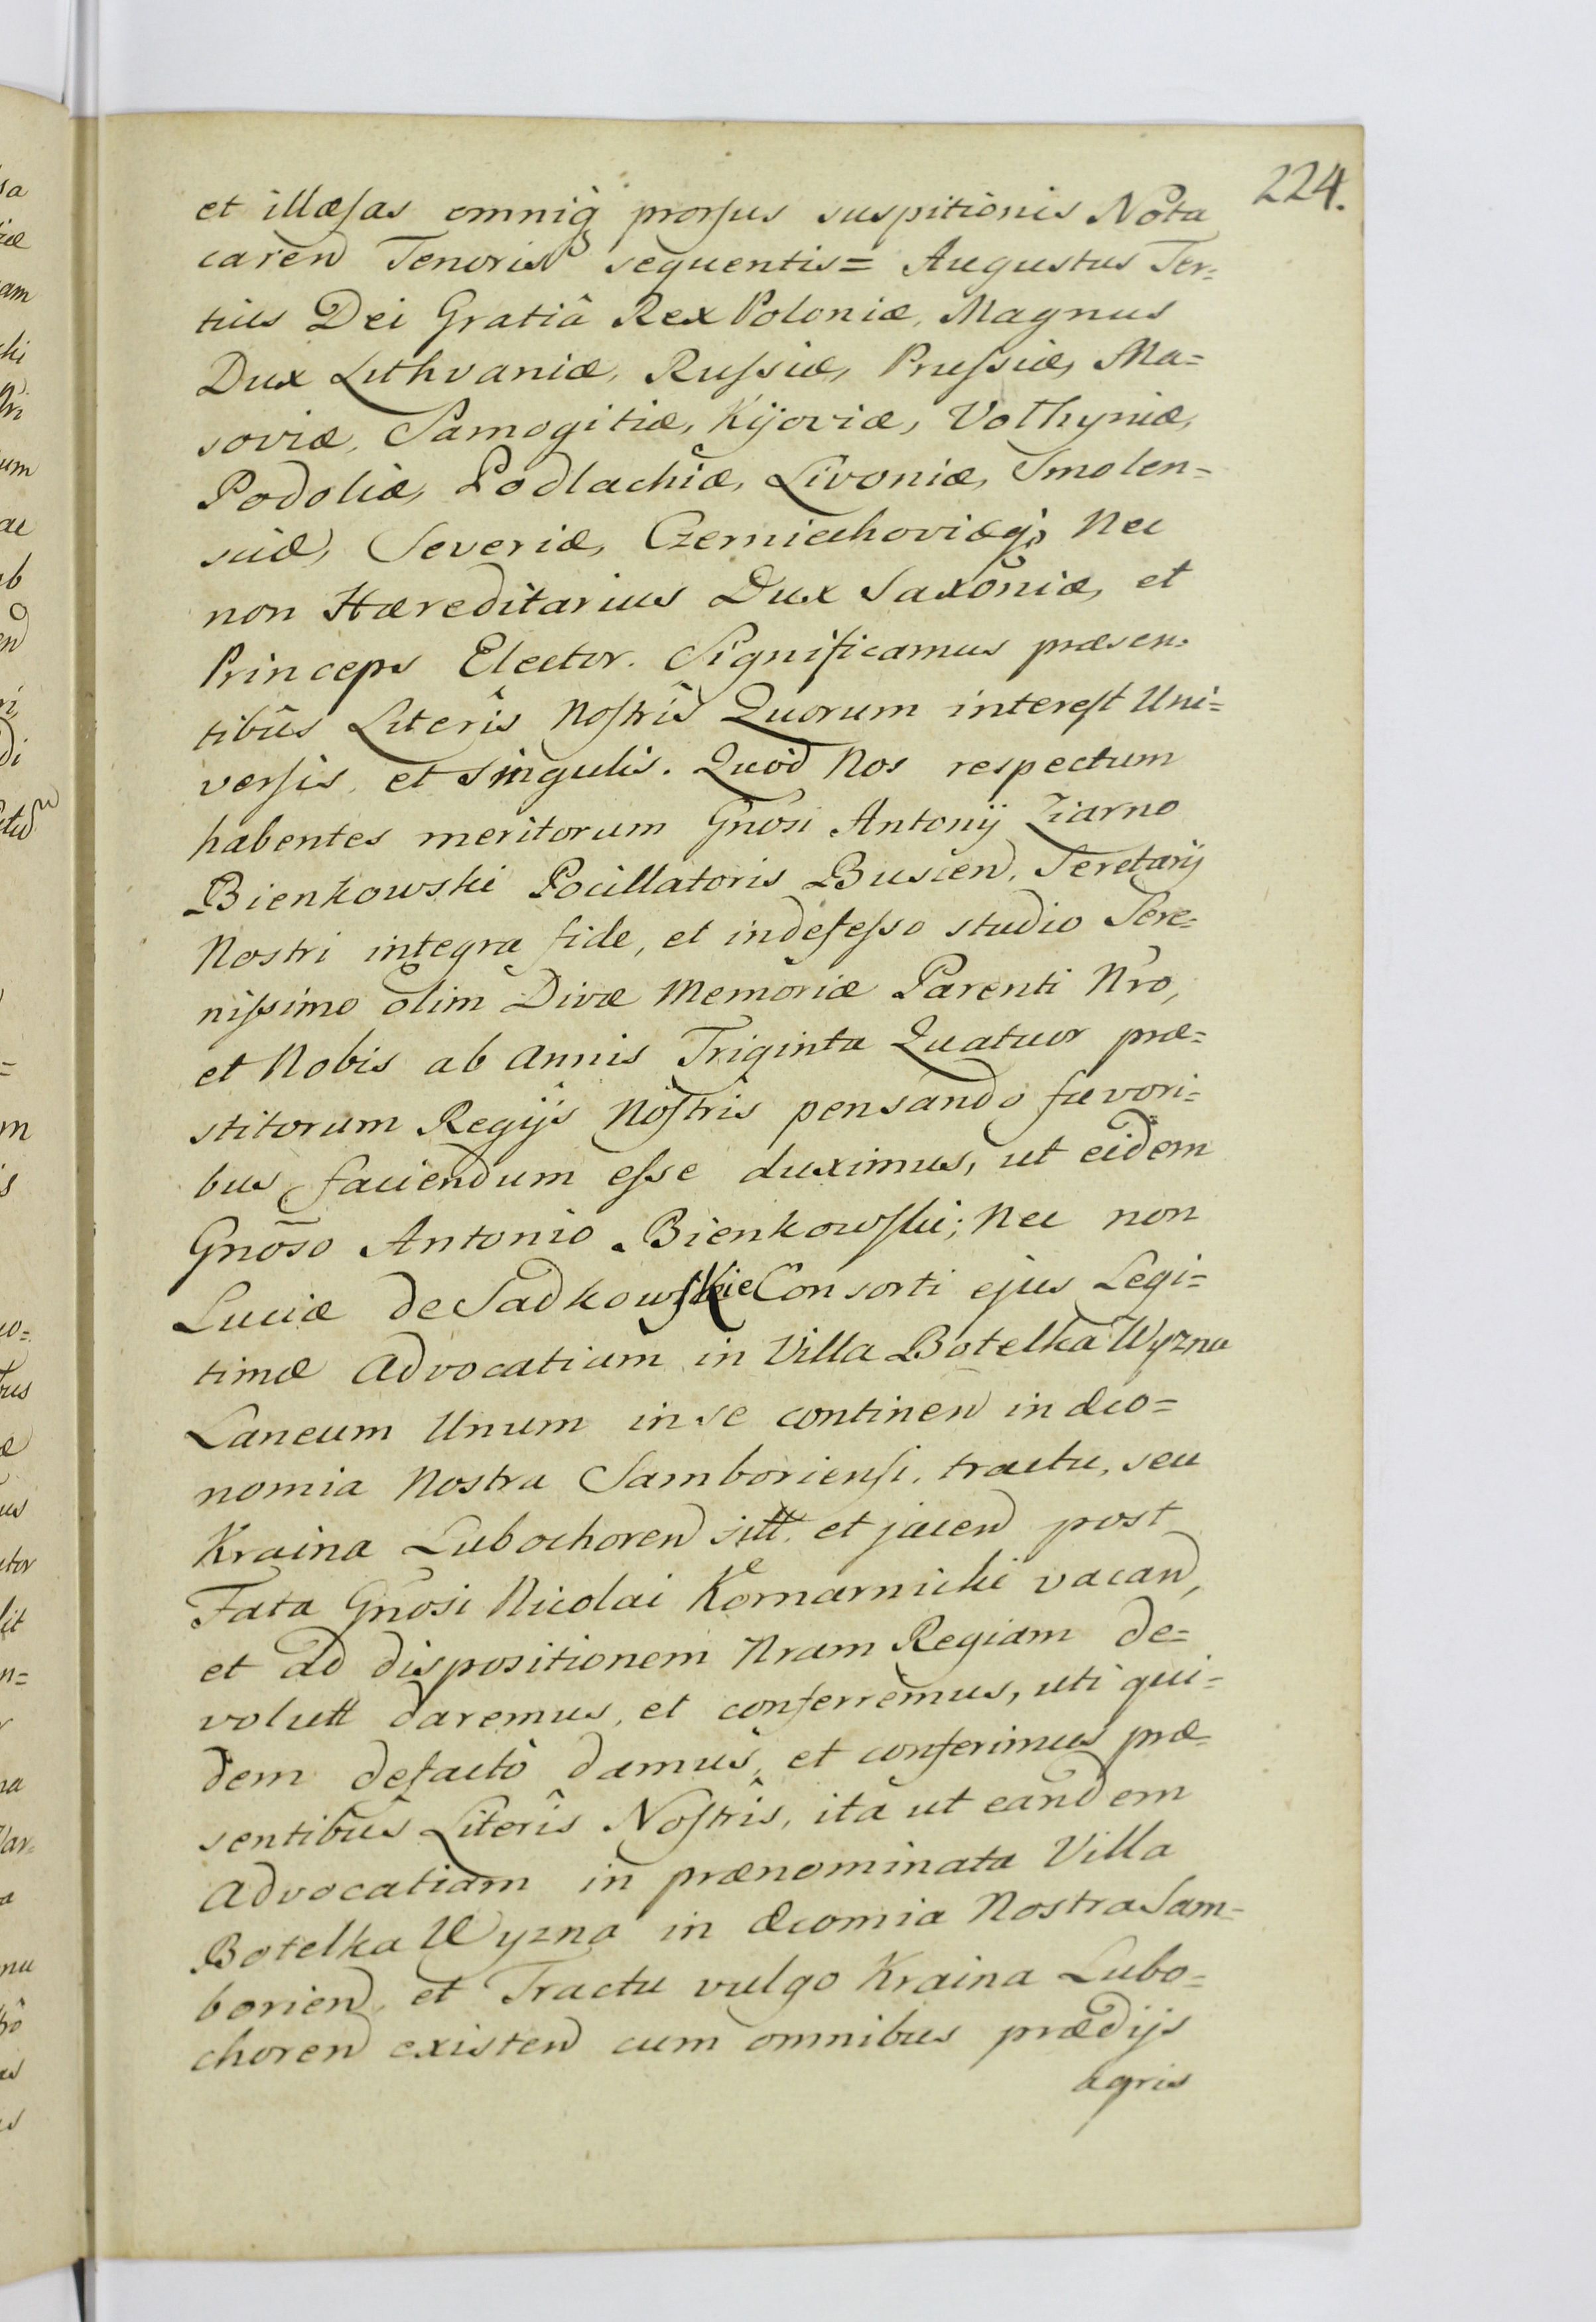 224.
et illæsas omniq; prorsus suspitionis Nota
caren Tenoris sequentis= Augustus Ter=
tius Dei Gratiâ Rex Poloniæ, Magnus
Dux Lithvaniæ, Russiæ, Prussiæ, Ma=
soviæ, Samogitiæ, Kijoviæ, Volhyniæ,
Podoliæ, Podlachiæ, Livoniæ, Smolen=
sciæ, Severiæ, Czerniechoviæq; Nec
non Hæreditarius Dux Saxoniæ, et
Princeps Elector. Significamus præsen=
tibûs Literîs Nostrîs Quorum interest Uni=
versis, et Singulis. Quòd Nos respectum
habentes meritorum Gnosi Antonij Ziarno
Bienkowski Pocillatoris Buscen, Seretarij
Nostri integra fide, et indefesso studio Sere=
nissimo olim Divæ Memoriæ Parenti Nro,
et Nobis ab Annis Triginta Quatuor præ=
stitorum Regijs Nostrîs pensando favori=
bus faciendum esse duximus, ut eidem
Gnõso Antonio Bienkowski; Nec non
Luciæ de Sadkowskie Consorti ejus Legi=
timæ Advocatiam in Villa Botelka Wyzna
Laneum Unum in se continen in æco=
nomia Nostra Samboriensi, tractu, seu
Kraina Lubochoren sitt. et jacen post
Fata Gnosi Nicolai Komarnicki vacan,
et ad dispositionem Nram Regiam de=
volutt daremus, et conferremus, uti qui=
dem defactò damus, et conferimus præ=
sentibûs Literîs Nostrîs, ità ut eandem
Advocatiam in prænominata Villa
Botelka Wyzna in Æcomia Nostra Sam=
borien, et Tractu vulgo Kraina Lubo=
choren existen cum omnibus prædijs
agris